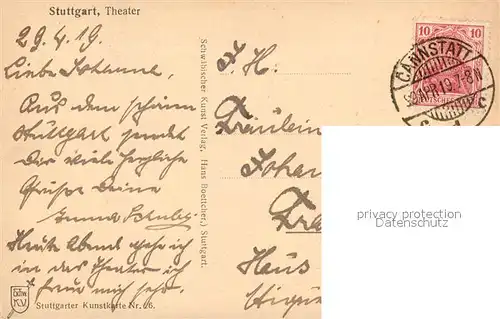 Stuttgart, Theater
29.4.19.
Liebe Johanna,
Aus dem schönen
Stuttgart sendet
Dir viele herzliche
Grüße Deine
Emma
Heute Abend gehe ich
in das Theater ich
freu mich sehr.
Stuttgarter Kunstkarte Nr. 26.
Schwäbischer Kunst Verlag, Hans Boettcher, Stuttgart.
10 10
CANNSTATT
APR.19.7-8N
H.
Fräulein
Johan
Haus
privacy protection
Datenschutz